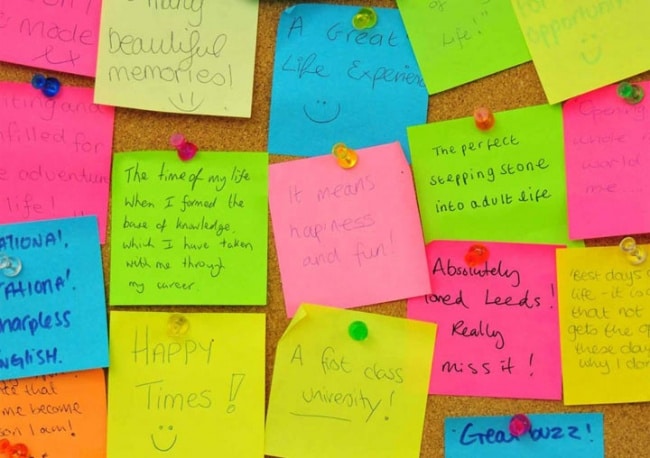 made
many
beautiful
memories!
A Great
Life Experience
life!
for
opportunity
iting and
filled for
e adventure
life!
The time of my life
when I formed the
base of knowledge,
which I have taken
with me through
my career.
It means
happiness
and fun!
The perfect
stepping stone
into adult life
Opening
whole
world
me...
ATIONA!,
RATIONA!
harpless
NGLISH.
Absolutely
loved Leeds!
Really
miss it!
Best days
life - it is
that not
gets the
these days
why I don
HAPPY
Times!
A first class
university!
that
me become
son I am!
Great buzz!